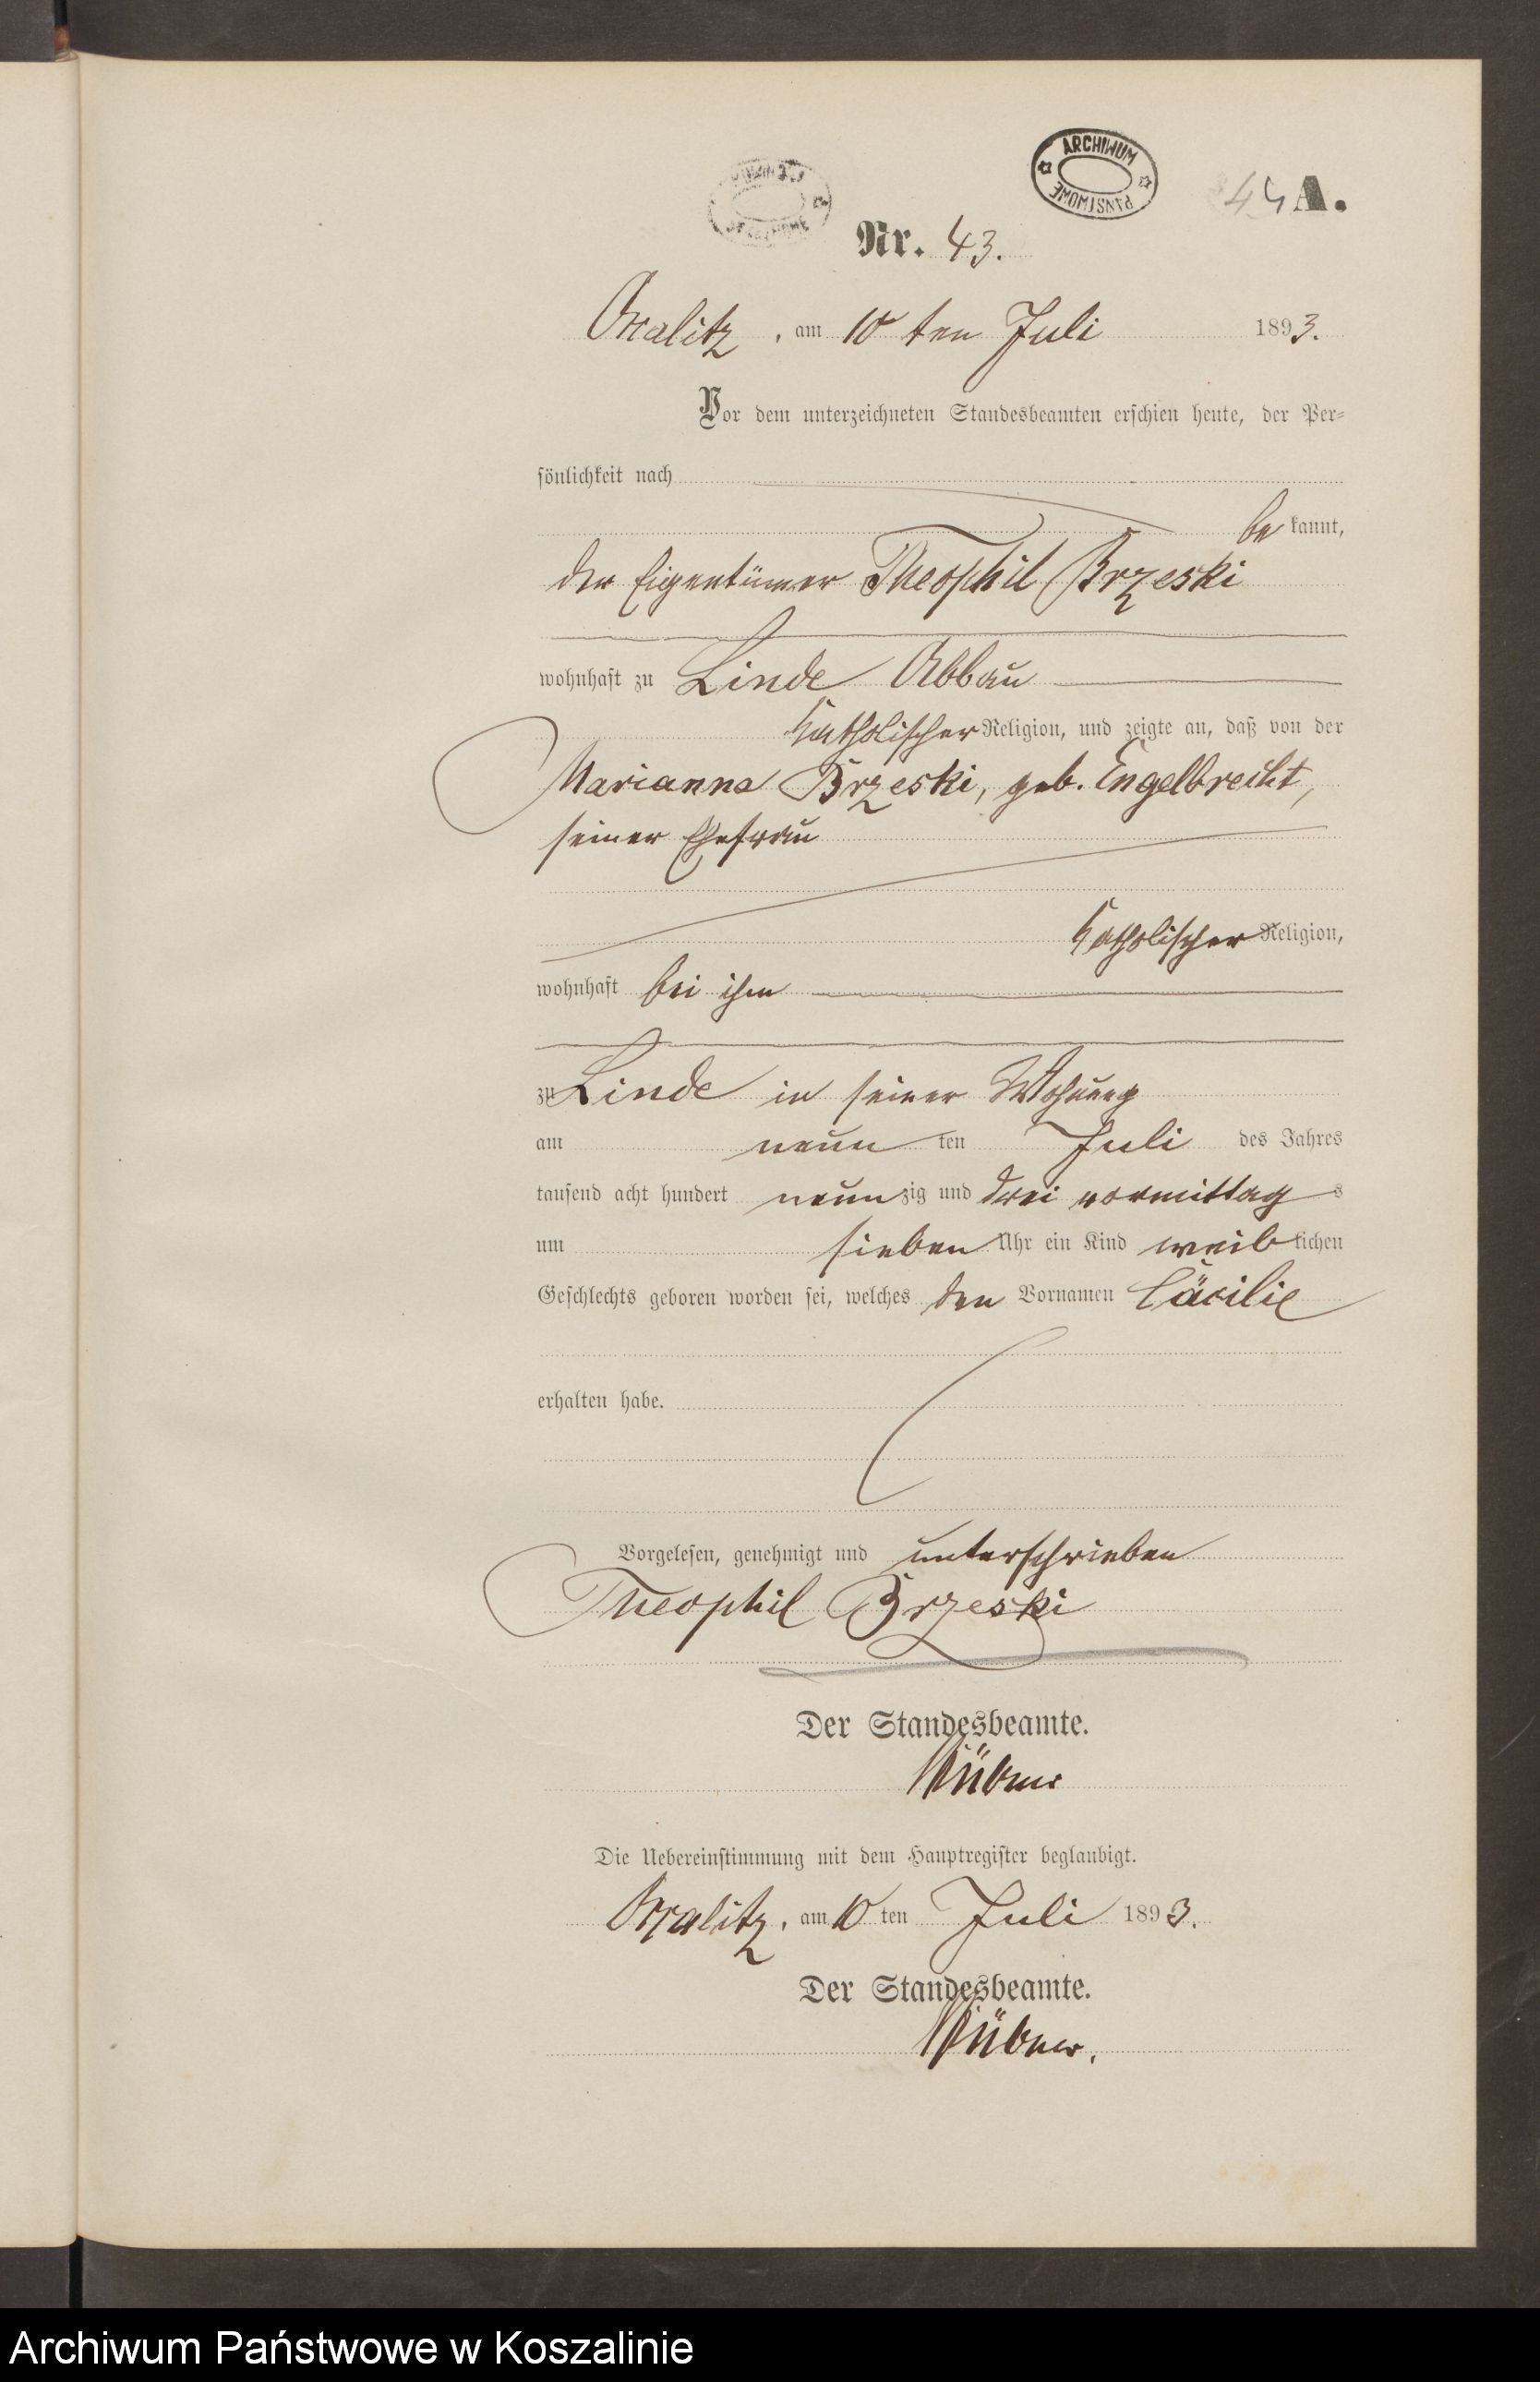 ARCHIWUM PAŃSTWOWE
44 A.
Nr. 43.
am 10 ten Juli 1893.
Vor dem unterzeichneten Standesbeamten erschien heute, der Per-
sönlichkeit nach
bekannt,
der Eigentümer Theophil Brzeski
wohnhaft zu Linde Abbau
katholischer Religion, und zeigte an, daß von der
Marianna Brzeski, geb. Engelbrecht,
seiner Ehefrau
katholischer Religion,
wohnhaft bei ihm
zu Linde in seiner Wohnung
am neun ten Juli des Jahres
tausend acht hundert neunzig und drei vormittags
um sieben Uhr ein Kind weiblichen
Geschlechts geboren worden sei, welches den Vornamen Cäcilie
erhalten habe.
Vorgelesen, genehmigt und unterschrieben
Theophil Brzeski
Der Standesbeamte.
Die Uebereinstimmung mit dem Hauptregister beglaubigt.
am 10 ten Juli 1893.
Der Standesbeamte.
Archiwum Państwowe w Koszalinie